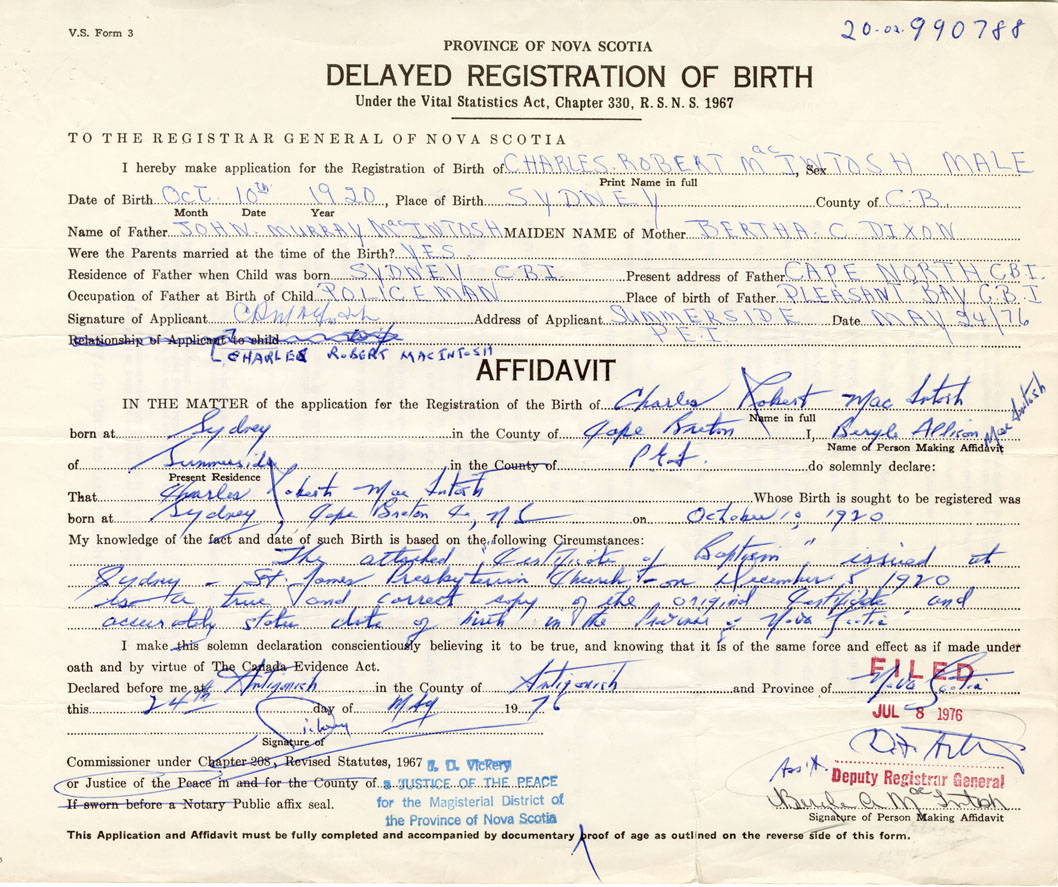 V.S. Form 3
20-02-990788
PROVINCE OF NOVA SCOTIA
DELAYED REGISTRATION OF BIRTH
Under the Vital Statistics Act, Chapter 330, R. S. N. S. 1967
TO THE REGISTRAR GENERAL OF NOVA SCOTIA
I hereby make application for the Registration of Birth of CHARLES ROBERT MacINTOSH, Sex MALE
Print Name in full
Date of Birth OCT. 10th 1920, Place of Birth SYDNEY County of C.B.
Month Date Year
Name of Father JOHN MURRAY MacINTOSH MAIDEN NAME of Mother BERTHA C. DIXON
Were the Parents married at the time of the Birth? YES
Residence of Father when Child was born SYDNEY C.B.I. Present address of Father CAPE NORTH C.B.I.
Occupation of Father at Birth of Child POLICEMAN Place of birth of Father PLEASANT BAY C.B.I
Signature of Applicant Address of Applicant SUMMERSIDE Date MAY 24/76
Relationship of Applicant to child P.E.I.
CHARLES ROBERT MACINTOSH
AFFIDAVIT
IN THE MATTER of the application for the Registration of Birth of Charles Robert Mac Intosh
Name in full
born at Sydney in the County of Cape Breton I, Beryle Allison Mac Intosh
Name of Person Making Affidavit
of Summerside in the County of P.E.I. do solemnly declare:
Present Residence
That Charles Robert Mac Intosh Whose Birth is sought to be registered was
born at Sydney, Cape Breton Co, N.S. on October 10, 1920
My knowledge of the fact and date of such Birth is based on the following Circumstances:
The attached "Certificate of Baptism" issued at
Sydney - St. James Presbyterian Church - on December 5 1920
is a true and correct copy of the original Certificate and
accurately states date of birth in the Province of Nova Scotia
I make this solemn declaration conscientiously believing it to be true, and knowing that it is of the same force and effect as if made under
oath and by virtue of The Canada Evidence Act.
FILED
Declared before me at Antigonish in the County of Antigonish and Province of Nova Scotia
this 24th day of MAY 1976
JUL 8 1976
Signature of
Commissioner under Chapter 208, Revised Statutes, 1967
Vickery
or Justice of the Peace in and for the County of
a JUSTICE OF THE PEACE
Ass't. Deputy Registrar General
If sworn before a Notary Public affix seal.
for the Magisterial District of
the Province of Nova Scotia
Beryle A. MacIntosh
Signature of Person Making Affidavit
This Application and Affidavit must be fully completed and accompanied by documentary proof of age as outlined on the reverse side of this form.